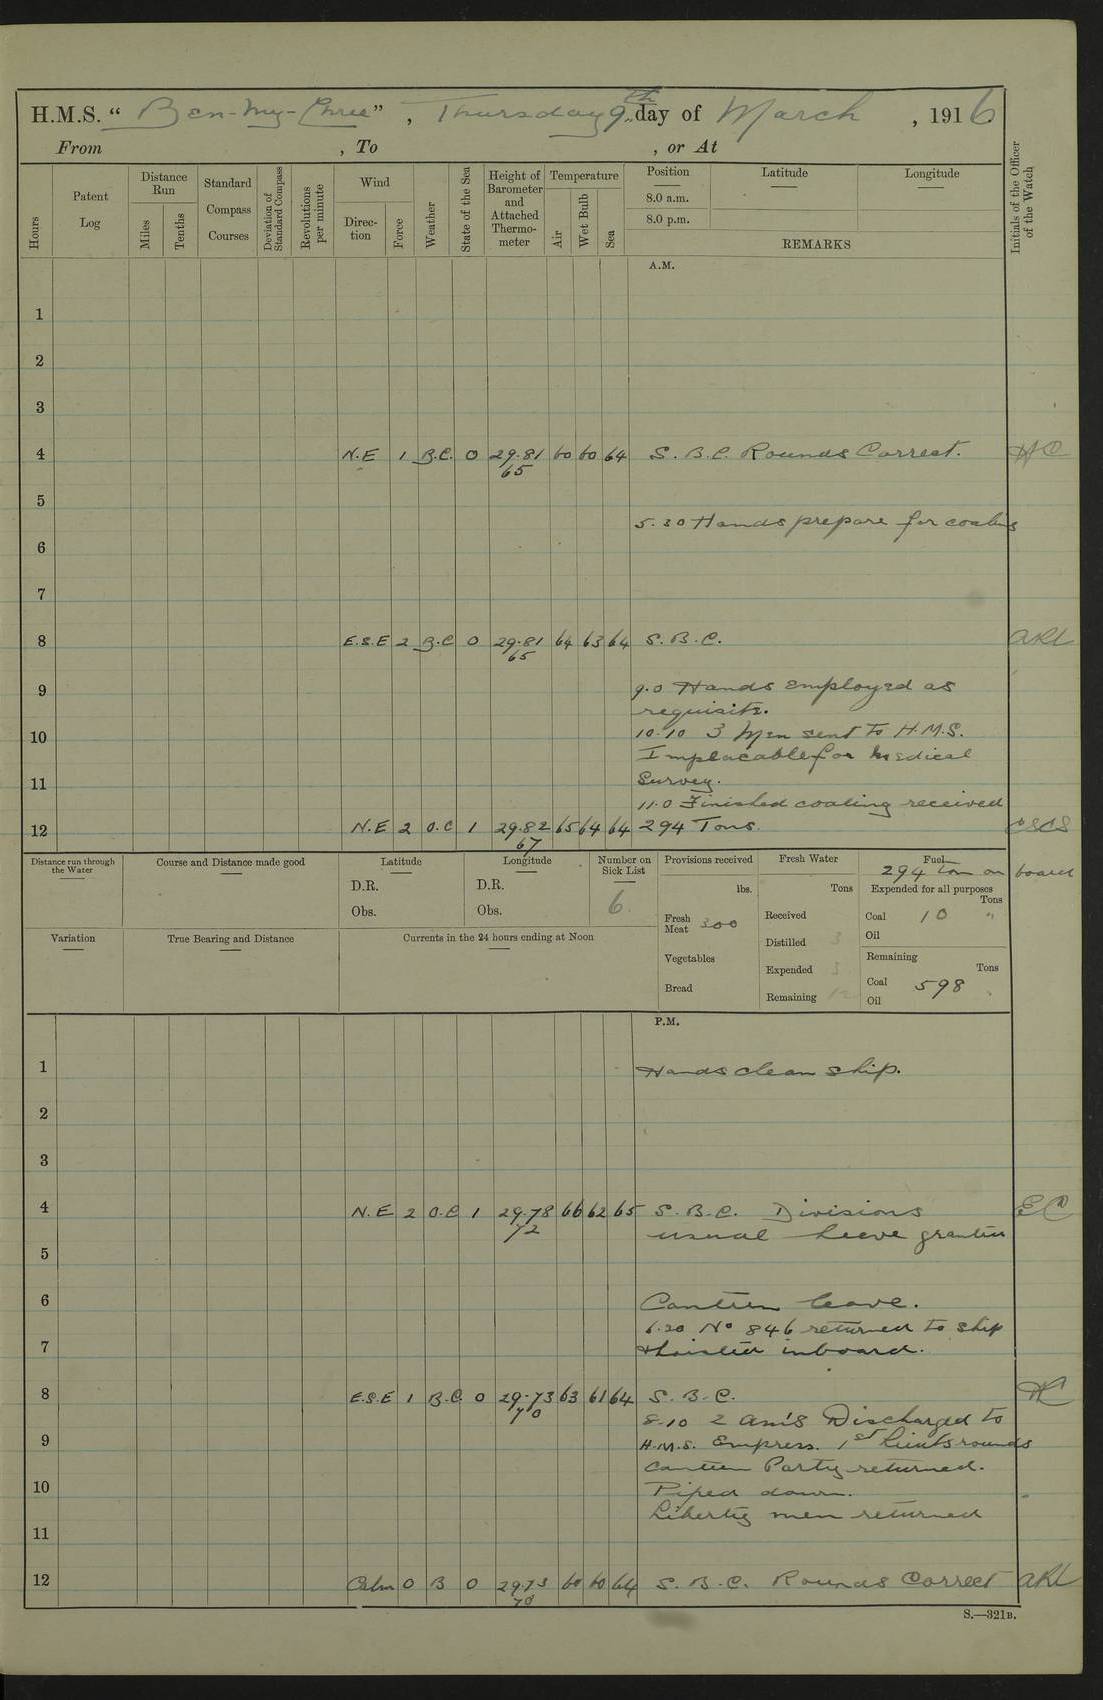 H.M.S. “ Ben-My-Chree ” , Thursday 9th day of March , 1916
From , To , or At
Hours
Patent Log
Distance Run
Miles
Tenths
Standard Compass Courses
Deviation of Standard Compass
Revolutions per minute
Wind
Direction
Force
Weather
State of the Sea
Height of Barometer and Attached Thermometer
Temperature
Air
Wet Bulb
Sea
Position
8.0 a.m.
8.0 p.m.
Latitude
Longitude
REMARKS
Initials of the Officer of the Watch
A.M.
1
2
3
4 N.E 1 B.C. 0 29.81 60 60 64 S. B. C. Rounds Correct.
65
5
5.30 Hands prepare for coaling
6
7
8 E.S.E 2 B.C 0 29.81 64 63 64 S. B. C. ARW
65
9 9.0 Hands employed as
requisite.
10 10.10 3 Men sent to H.M.S.
Implacable for Medical
11 Survey.
11.0 Finished coaling received
12 N.E 2 O.C 1 29.82 65 64 64 294 Tons.
67
Distance run through the Water
Course and Distance made good
Latitude
D.R.
Obs.
Longitude
D.R.
Obs.
Number on Sick List
6
Provisions received
lbs.
Fresh Meat 300
Vegetables
Bread
Fresh Water
Tons
Received
Distilled 3
Expended 3
Remaining 12
Fuel
294 ton on board
Expended for all purposes
Tons
Coal 10 "
Oil
Remaining
Tons
Coal 598
Oil
Variation
True Bearing and Distance
Currents in the 24 hours ending at Noon
P.M.
1 Hands clean ship.
2
3
4 N.E 2 O.C 1 29.78 66 62 65 S. B. C. Divisions EC
72 usual leeve granted
5
6 Canteen leave.
6.20 No 846 returned to ship
7 & hoisted inboard.
8 E.S.E 1 B.C. 0 29.73 63 61 64 S. B. C.
70 8.10 2 Discharged to
9 H.M.S. Empress. 1st Lieuts rounds
Canteen Party returned.
10 Piped down.
Liberty men returned
11
12 Calm 0 B 0 29.73 60 60 64 S. B. C. Rounds Correct ARW
70
S.—321B.